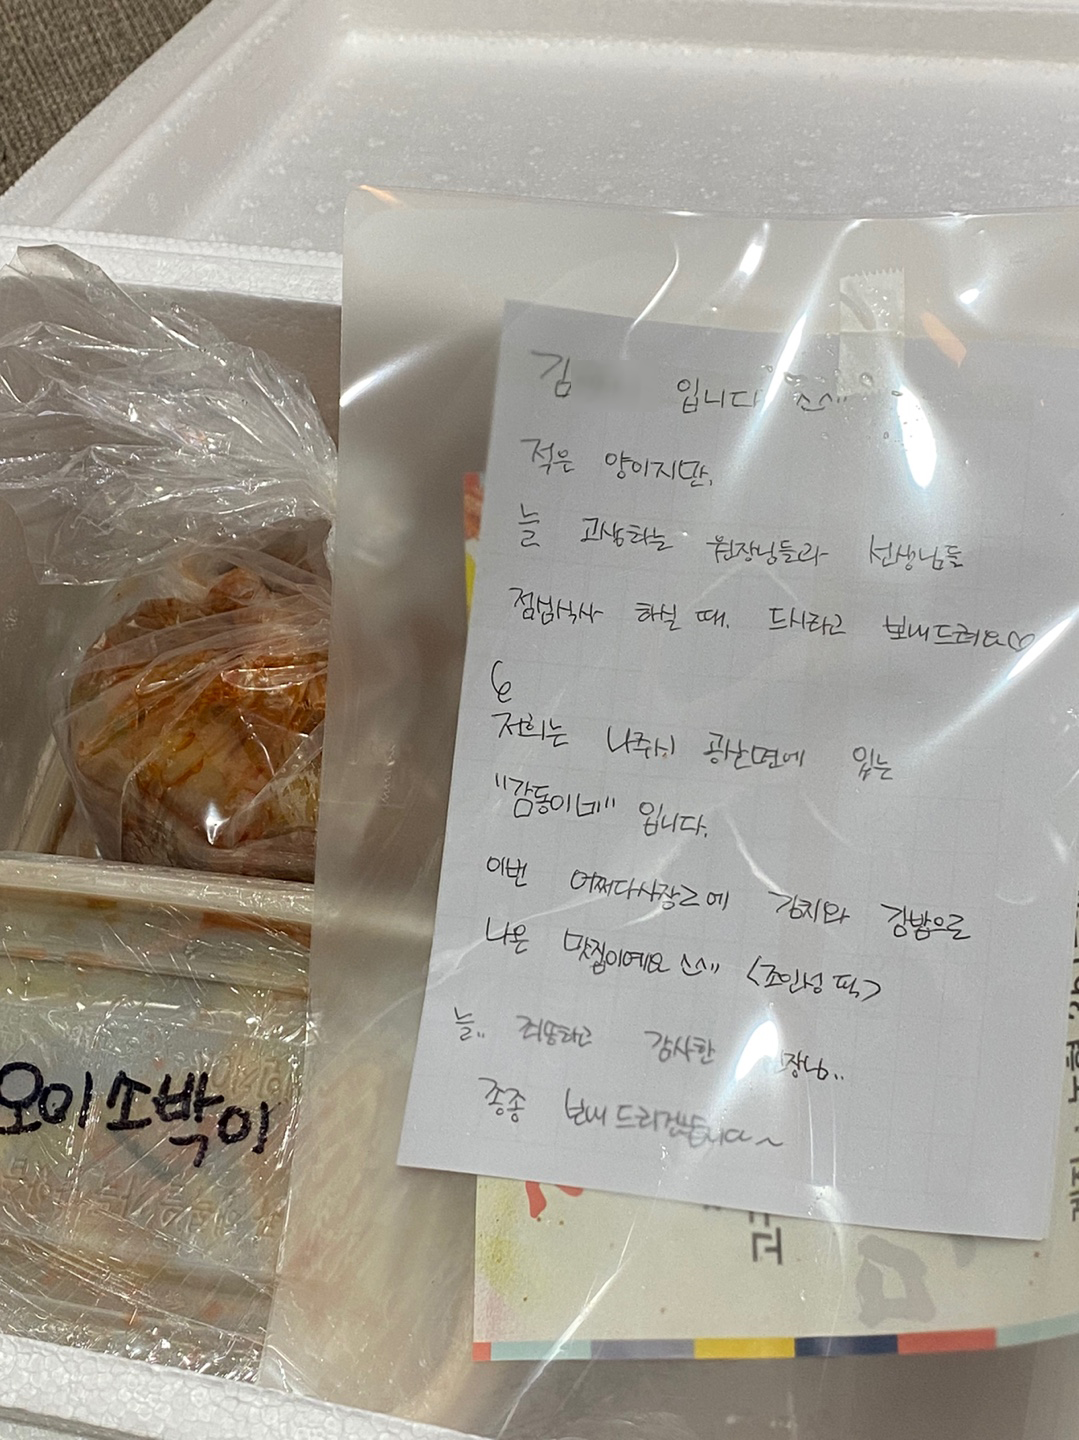 김 입니다 ^^
적은 양이지만,
늘 고생하는 원장님들과 선생님들
점심식사 하실 때. 드시라고 보내드려요♡
저희는 나주시 공산면에 있는
"감동이네" 입니다.
이번 어쩌다사장2에 김치와 김밥으로
나온 맛집이예요 ^^ <조인성 픽>
늘.. 죄송하고 감사한 원장님..
종종 보내 드리겠습니다~
오이소박이